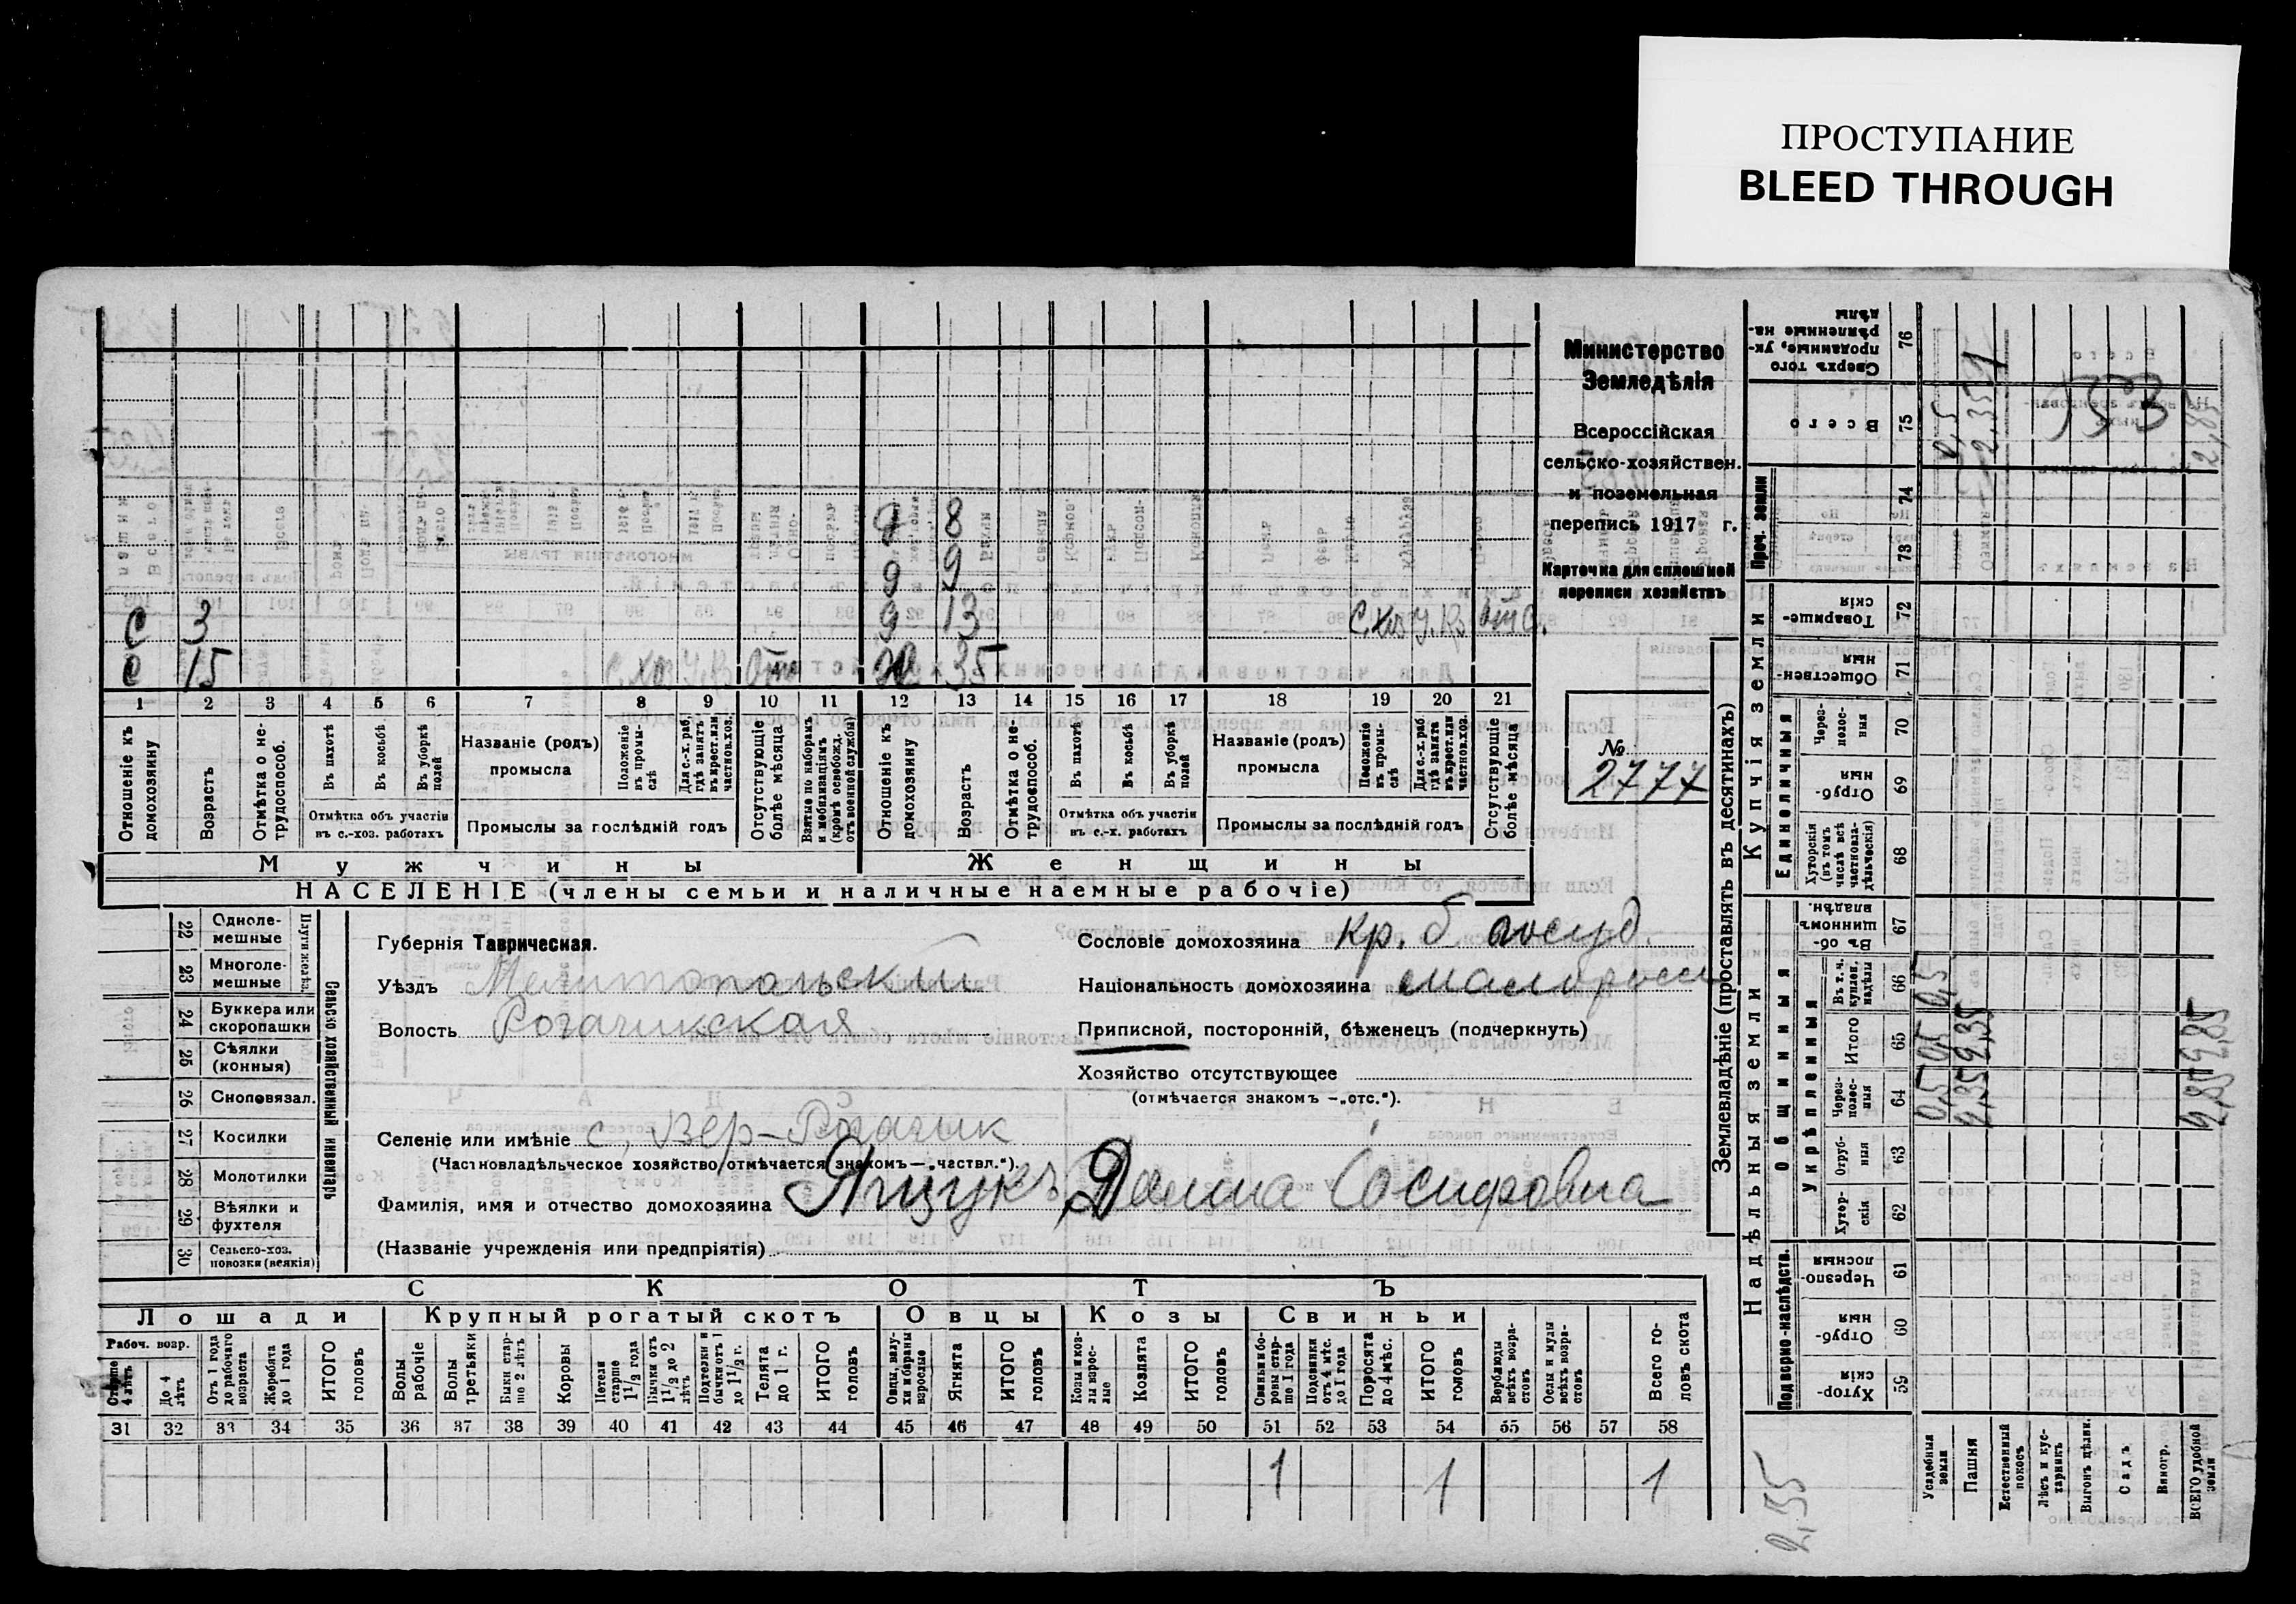 ПРОСТУПАНИЕ
BLEED THROUGH
Министерство
Земледѣлія
Всероссійская
сельско-хозяйствен.
и поземельная
перепись 1917 г.
Карточка для сплошной
переписи хозяйствъ
№
2777
9 8
9 9
с 3 9 13 с.хоз У.К. отс.
с 15 с.хоз У.К. Отс 35
1 2 3 4 5 6 7 8 9 10 11 12 13 14 15 16 17 18 19 20 21
Отношеніе къ домохозяину
Возрастъ
Отмѣтка о не-трудоспособ.
Въ пахотѣ
Въ косьбѣ
Въ уборкѣ полей
Отмѣтка объ участіи въ с.-хоз. работахъ
Названіе (родъ) промысла
Положеніе въ промы-слѣ
Для с.-х. раб. гдѣ занятъ въ крест. или частнов. хоз.
Промыслы за послѣдній годъ
Отсутствующіе болѣе мѣсяца
Взятые по наборамъ и мобилизаціямъ (кромѣ освобожд. отъ военной службы)
Отношеніе къ домохозяину
Возрастъ
Отмѣтка о не-трудоспособ.
Въ пахотѣ
Въ косьбѣ
Въ уборкѣ полей
Отмѣтка объ участіи въ с.-х. работахъ
Названіе (родъ) промысла
Положеніе въ промы-слѣ
Для с.-х. раб. гдѣ занята въ крест. или частнов. хоз.
Промыслы за послѣдній годъ
Отсутствующіе болѣе мѣсяца
Мужчины Женщины
НАСЕЛЕНІЕ (члены семьи и наличные наемные рабочіе)
22 Одноле-мешные
23 Многоле-мешные
Плуги желѣз.
24 Буккера или скоропашки
25 Сѣялки (конныя)
26 Сноповязал.
27 Косилки
28 Молотилки
29 Вѣялки и фухтеля
30 Сельско-хоз. повозки (всякія)
Сельско хозяйственный инвентарь
Губернія Таврическая.
Уѣздъ Мелитопольский
Волость Рогачикская
Сословіе домохозяина Кр. б. госуд.
Національность домохозяина малоросс
Приписной, посторонній, бѣженецъ (подчеркнуть)
Хозяйство отсутствующее
(отмѣчается знакомъ —„отс.“).
Селеніе или имѣніе с. Вер-Рогачик
(Частновладѣльческое хозяйство отмѣчается знакомъ—„частвл.“).
Фамилія, имя и отчество домохозяина Ящукъ Осифовна
(Названіе учрежденія или предпріятія)
СКОТЪ
Лошади Крупный рогатый скотъ Овцы Козы Свиньи
Рабоч. возр.
Старше 4 лѣтъ
До 4 лѣтъ
Отъ 1 года до рабочаго возраста
Жеребята до 1 года
ИТОГО головъ
Волы рабочіе
Волы третьяки
Быки стар-ше 2 лѣтъ
Коровы
Нетели старше 1 1/2 года
Бычки отъ 1 1/2 до 2 лѣтъ
Подтелки и бычки отъ 1 до 1 1/2 г.
Телята до 1 г.
ИТОГО головъ
Овцы, валу-хи и бараны взрослые
Ягнята
ИТОГО головъ
Козы и коз-лы взрос-лые
Козлята
ИТОГО головъ
Свиньи и бо-ровы стар-ше 1 года
Подсвинки отъ 4 мѣс. до 1 года
Поросята до 4 мѣс.
ИТОГО головъ
Верблюды всѣхъ возра-стовъ
Ослы и мулы всѣхъ возра-стовъ
Всего го-ловъ скота
31 32 33 34 35 36 37 38 39 40 41 42 43 44 45 46 47 48 49 50 51 52 53 54 55 56 57 58
1 1 1
Землевладѣніе (проставлять въ десятинахъ)
Надѣльныя земли Купчія земли Проч. земли
Подворно-наслѣдств.
Общинныя
Укрѣпленныя
Единоличныя
Хутор-скія 59
Отруб-ныя 60
Черезпо-лосныя 61
Хутор-скія 62
Отруб-ныя 63
Через-полос-ныя 64
Итого 65
Въ т. ч. куплен. надѣлы 66
Въ об-щинномъ владѣн. 67
Хуторскія (въ томъ числѣ всѣ частновла-дѣльческія) 68
Отруб-ныя 69
Через-полос-ныя 70
Обществен-ныя 71
Товарище-скія 72
73
74
Всего 75
Сверхъ того проданные, ук-рѣпленные на-дѣлы 76
Усадебныя земли 0,5 0,5 0,5 0,5
Пашня 2,35 2,35 2,35
Естественный покосъ
Лѣсъ и кус-тарникъ
Выгонъ цѣлин.
Садъ.
Виногр.
ВСЕГО удобной земли 2,85 2,85 2,85
553
2,35